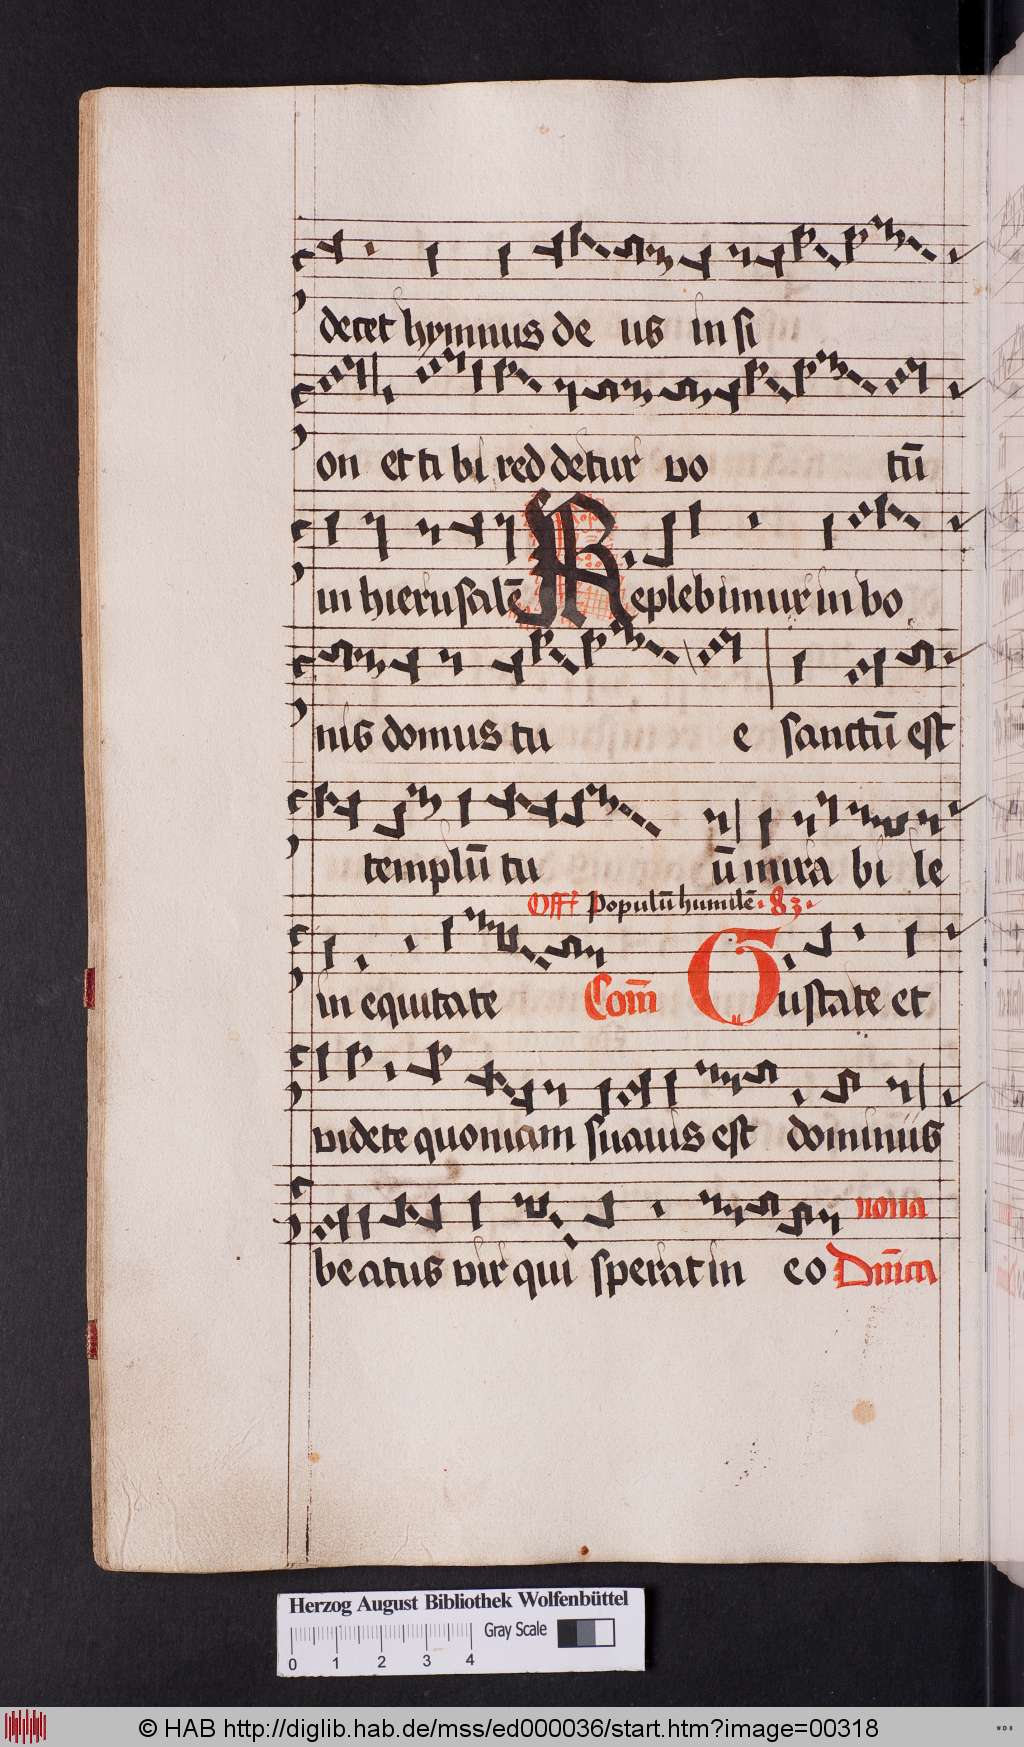 decet hymnus de us in si
on et ti bi red detur vo tū
in hierusalē Replebimur in bo
nis domus tu e sanctū est
templū tu ū mira bi le
Off Populū humilē · 83 ·
in equitate Com̄ Gustate et
videte quoniam suauis est dominus
nona
beatus vir qui sperat in eo Dn̄ica
Herzog August Bibliothek Wolfenbüttel
Gray Scale
0 1 2 3 4
© HAB http://diglib.hab.de/mss/ed000036/start.htm?image=00318